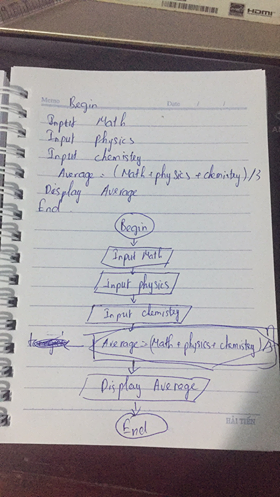 HDMI
Memo Begin Date / /
Input Math
Input physics
Input chemistry
Average = (Math + physics + chemistry) / 3
Display Average
End
Begin
Input Math
Input physics
Input chemistry
Average = (Math + physics + chemistry) / 3
Display Average
End
HẢI TIẾN